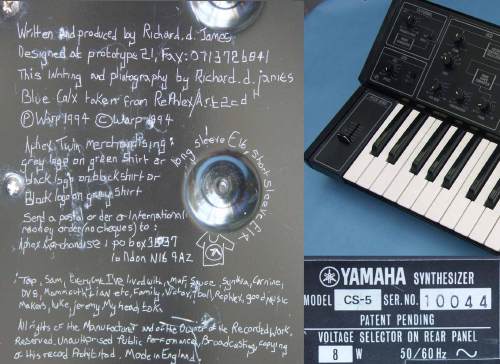 Written and produced by Richard. d. James
Designed at prototype 21, Fax: 0713726841
This Writing and photography by Richard. d. james
Blue Calx taken from Rephlex/
℗ Warp 1994 © Warp 1994
Aphex Twin merchandising:
grey logo on green shirt or
black logo on black shirt or
Black logo on grey shirt
long sleeve £16, short sleeve £12
Send a postal order or international
money order (no cheques) to:
Aphex Merchandise: po box 3
london N16 9AZ
Top, Sam, Everyone I've lived with, Mar, Sauce, Synthia, Carnine,
DVS, Mammoth, Lian etc, Family, Victor, Paul, Rephlex, good music
Makers, luke, jeremy, My head,
All rights of the Manufacturer and of the Owner of the Recorded Work,
Reserved, Unauthorised Public Performance, Broadcasting, copying
of this record Prohibited. Made in England
YAMAHA SYNTHESIZER
MODEL CS-5 SER.NO. 10044
PATENT PENDING
VOLTAGE SELECTOR ON REAR PANEL
8 W 50/60 Hz ~